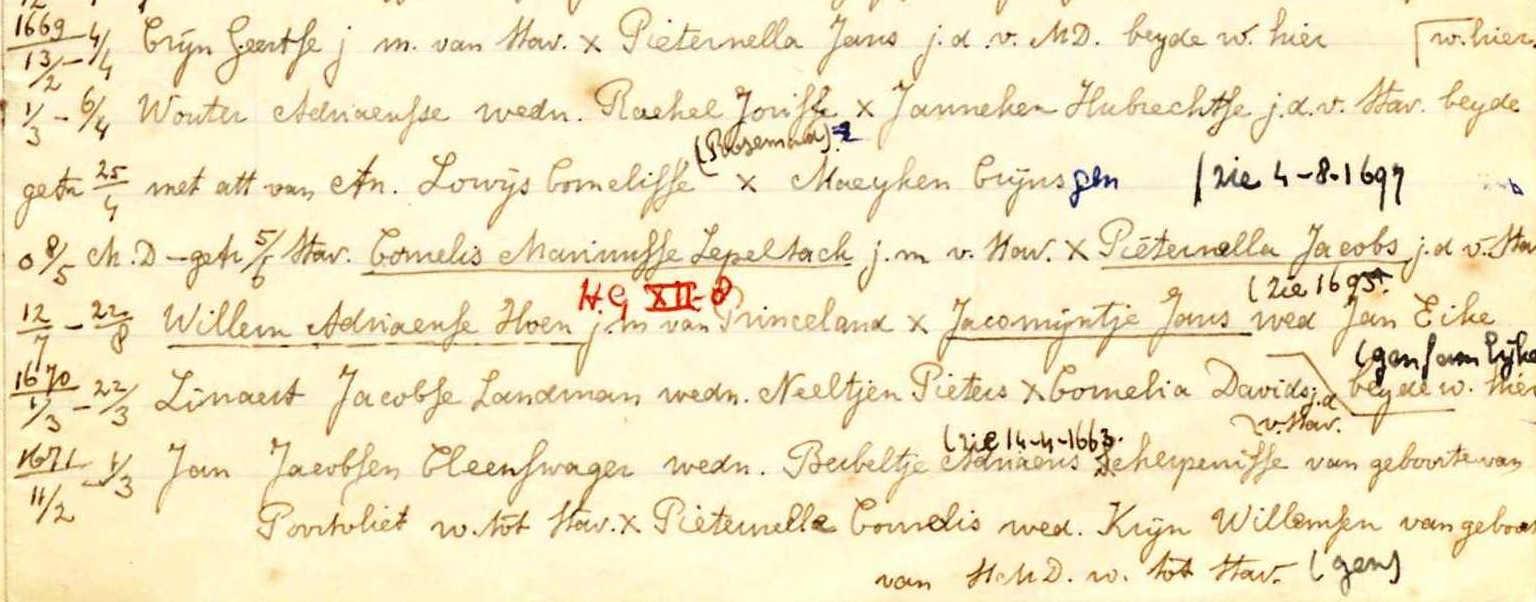 1669 13/2 – 4/4 Crijn Geertse j m. van Stav. x Pieternella Jans j.d.v. MD. beyde w. hier [w. hier.
1/3 – 6/4 Wouter Adriaensse wedn. Rachel Jorisse x Janneken Hubrechtse j.d.v. Stav. beyde
(Roosemond)
getr 25/4 met att van An. Lowijs Cornelisse x Maeyken Crijnsgen (zie 4-8-1697
o 8/5 M.D – getr 5/6 Stav. Cornelis Marinusse Lepeltack j.m v. Stav. x Pieternella Jacobs j.d v. Stav
H.G XII-8 (zie 1695.
12/7 – 22/8 Willem Adriaense Hoen j.m van Princeland x Jacomijntje Jans wed Jan Eike
(gen
1670 1/3 – 22/3 Linaert Jacobse Landman wedn. Neeltjen Pieters x Cornelia Davids j.d v. Stav. beyde w. hier
(zie 14-4-1663.
1671 11/2 – 1/3 Jan Jacobsen Cleenswager wedn. Beibeltje Adriaens Scherpenisse van geboorte van
Poortvliet w. tot Stav. x Pieternella Cornelis wed. Krijn Willemsen van geboor
van StMD. w. tot Stav. (gen)